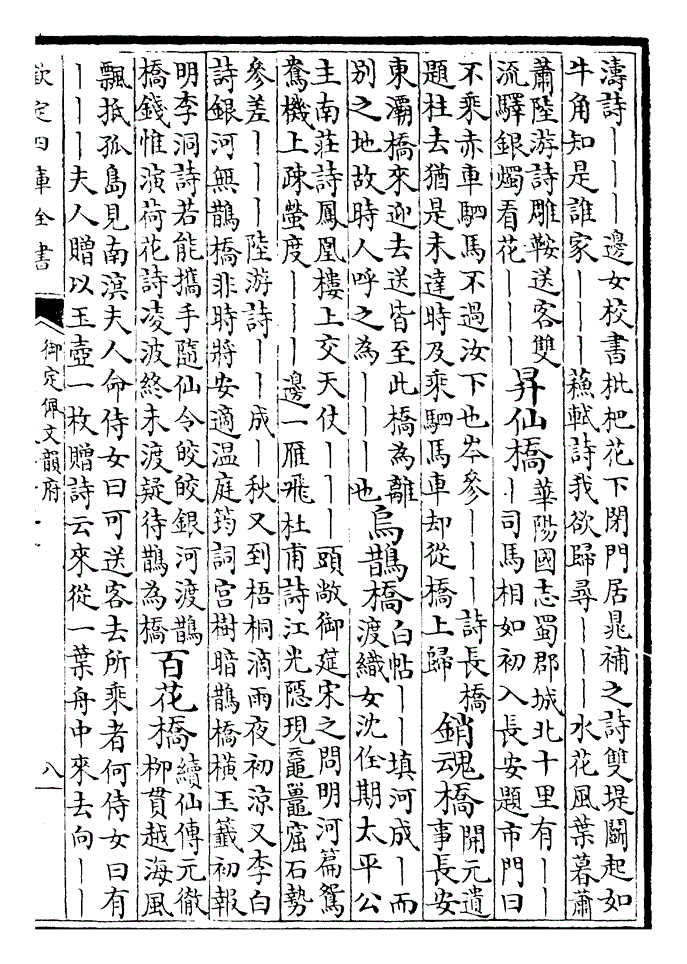 濤詩｜｜｜邊女校書枇杷花下閉門居晁補之詩雙堤鬭起如
牛角知是誰家｜｜｜蘓軾詩我欲歸尋｜｜｜水花風葉暮蕭
蕭陸游詩雕鞍送客雙
流驛銀燭看花｜｜｜
昇仙橋
華陽國志蜀郡城北十里有｜｜
｜司馬相如初入長安題市門曰
不乘赤車駟馬不過汝下也岑參｜｜｜詩長橋
題柱去猶是未達時及乘駟馬車却從橋上歸
銷魂橋
開元遺
事長安
東灞橋來迎去送皆至此橋為離
別之地故時人呼之為｜｜｜也
烏鵲橋
白帖｜｜填河成｜而
渡織女沈佺期太平公
主南莊詩鳳凰樓上交天仗｜｜｜頭敞御筵宋之問明河篇鴛
鴦機上疎螢度｜｜｜邊一雁飛杜甫詩江光隱現黿鼉窟石勢
參差｜｜｜陸游詩｜｜成｜秋又到梧桐滴雨夜初涼又李白
詩銀河無鵲橋非時將安適溫庭筠詞宮樹暗鵲橋橫玉籤初報
明李洞詩若能攜手隨仙令皎皎銀河渡鵲
橋錢惟演荷花詩凌波終未渡疑待鵲為橋
百花橋
續仙傳元徹
柳貫越海風
飄抵孤島見南溟夫人命侍女曰可送客去所乘者何侍女曰有
｜｜｜夫人贈以玉壺一枚贈詩云來從一葉舟中來去向｜｜
欽定四庫全書
御定佩文韻府
八